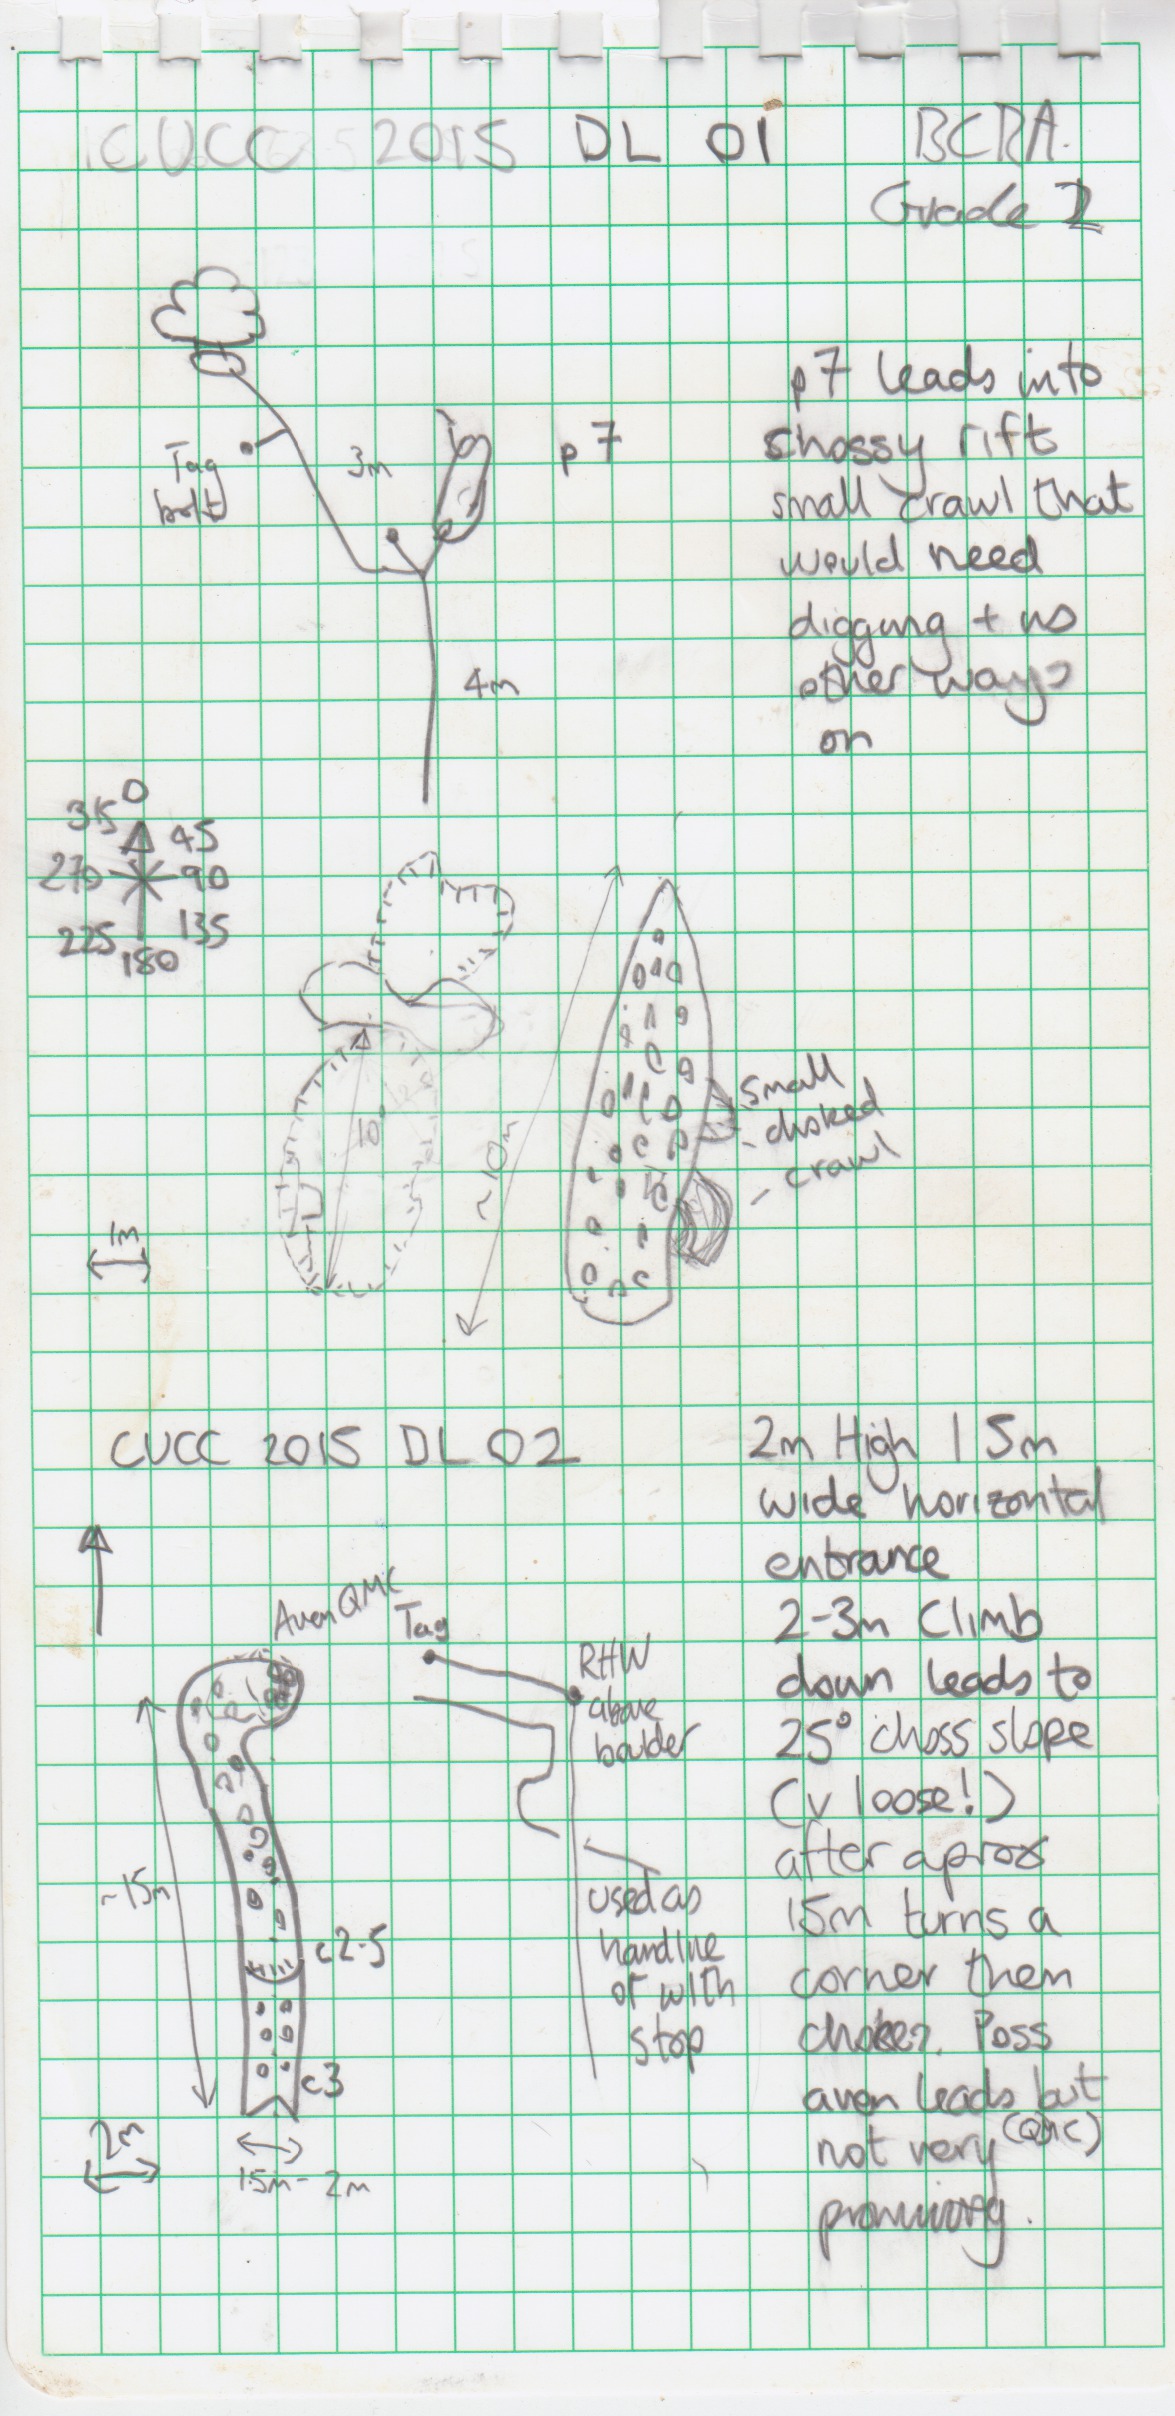 CUCC 2015 DL 01
BCRA
Grade 2
Tag
bolt
3m
p7
4m
p7 leads into
shossy rift
small crawl that
would need
digging + no
other ways
on
0
315
45
270
90
225
135
180
10°
~10m
small
choked
crawl
1m
CUCC 2015 DL 02
2m High 1 5m
wide horizontal
entrance
2-3m Climb
down leads to
25° choss slope
(v loose!)
after aprox
15m turns a
corner then
chokes. Poss
aven leads but
not very (QMC)
promising.
Aven QMC
Tag
RHW
above
boulder
~15m
used as
handline
or with
stop
c2.5
c3
2m
1.5m - 2m